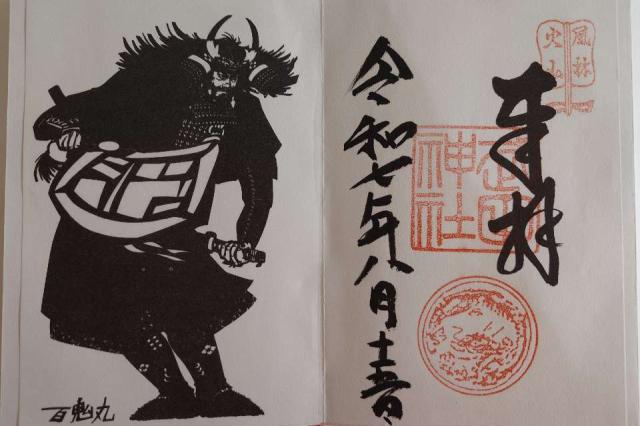 風林火山
奉拝
武田神社
令和七年八月十五日
百鬼丸